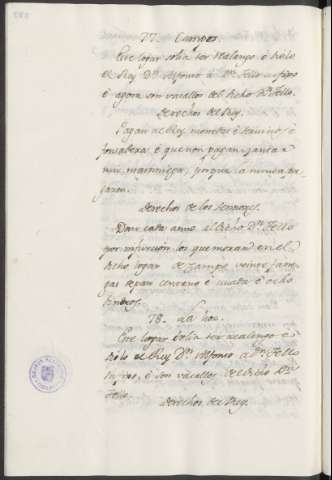 77. Campos.
Este logar solia ser realengo è diolo
el Rey Dn. Alfonso à Dn. Tello su fijo
è agora son vasallos del dicho Dn. Tello.
Derechos del Rey.
Pagan al Rey monedas è servicios, è
fonsadera è que non pagan jantar
nin martiniega, porque la nunca pa
garon.
Derechos de los Sennores.
Dan cada anno al dicho Dn. Tello
por infurcion los que moran en el
dicho logar de Campos veinte fane
gas de pan centeno è cevada è ocho
78. La hoz.
Este logar solia ser realengo è
diolo el Rey Dn. Alfonso a Dn. Tello
su fijo, è son vasallos del dicho Dn.
Tello.
Derechos del Rey.